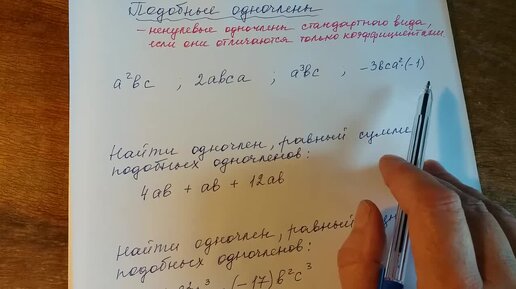 Подобные одночлены
- ненулевые одночлены стандартного вида,
если они отличаются только коэффициентами
a²bc , 2abca ; a³bc ; -3bca²·(-1)
Найти одночлен, равный сумме
подобных одночленов:
4ab + ab + 12ab
Найти одночлен, равный
подобных одночленов:
(-17)b²c³